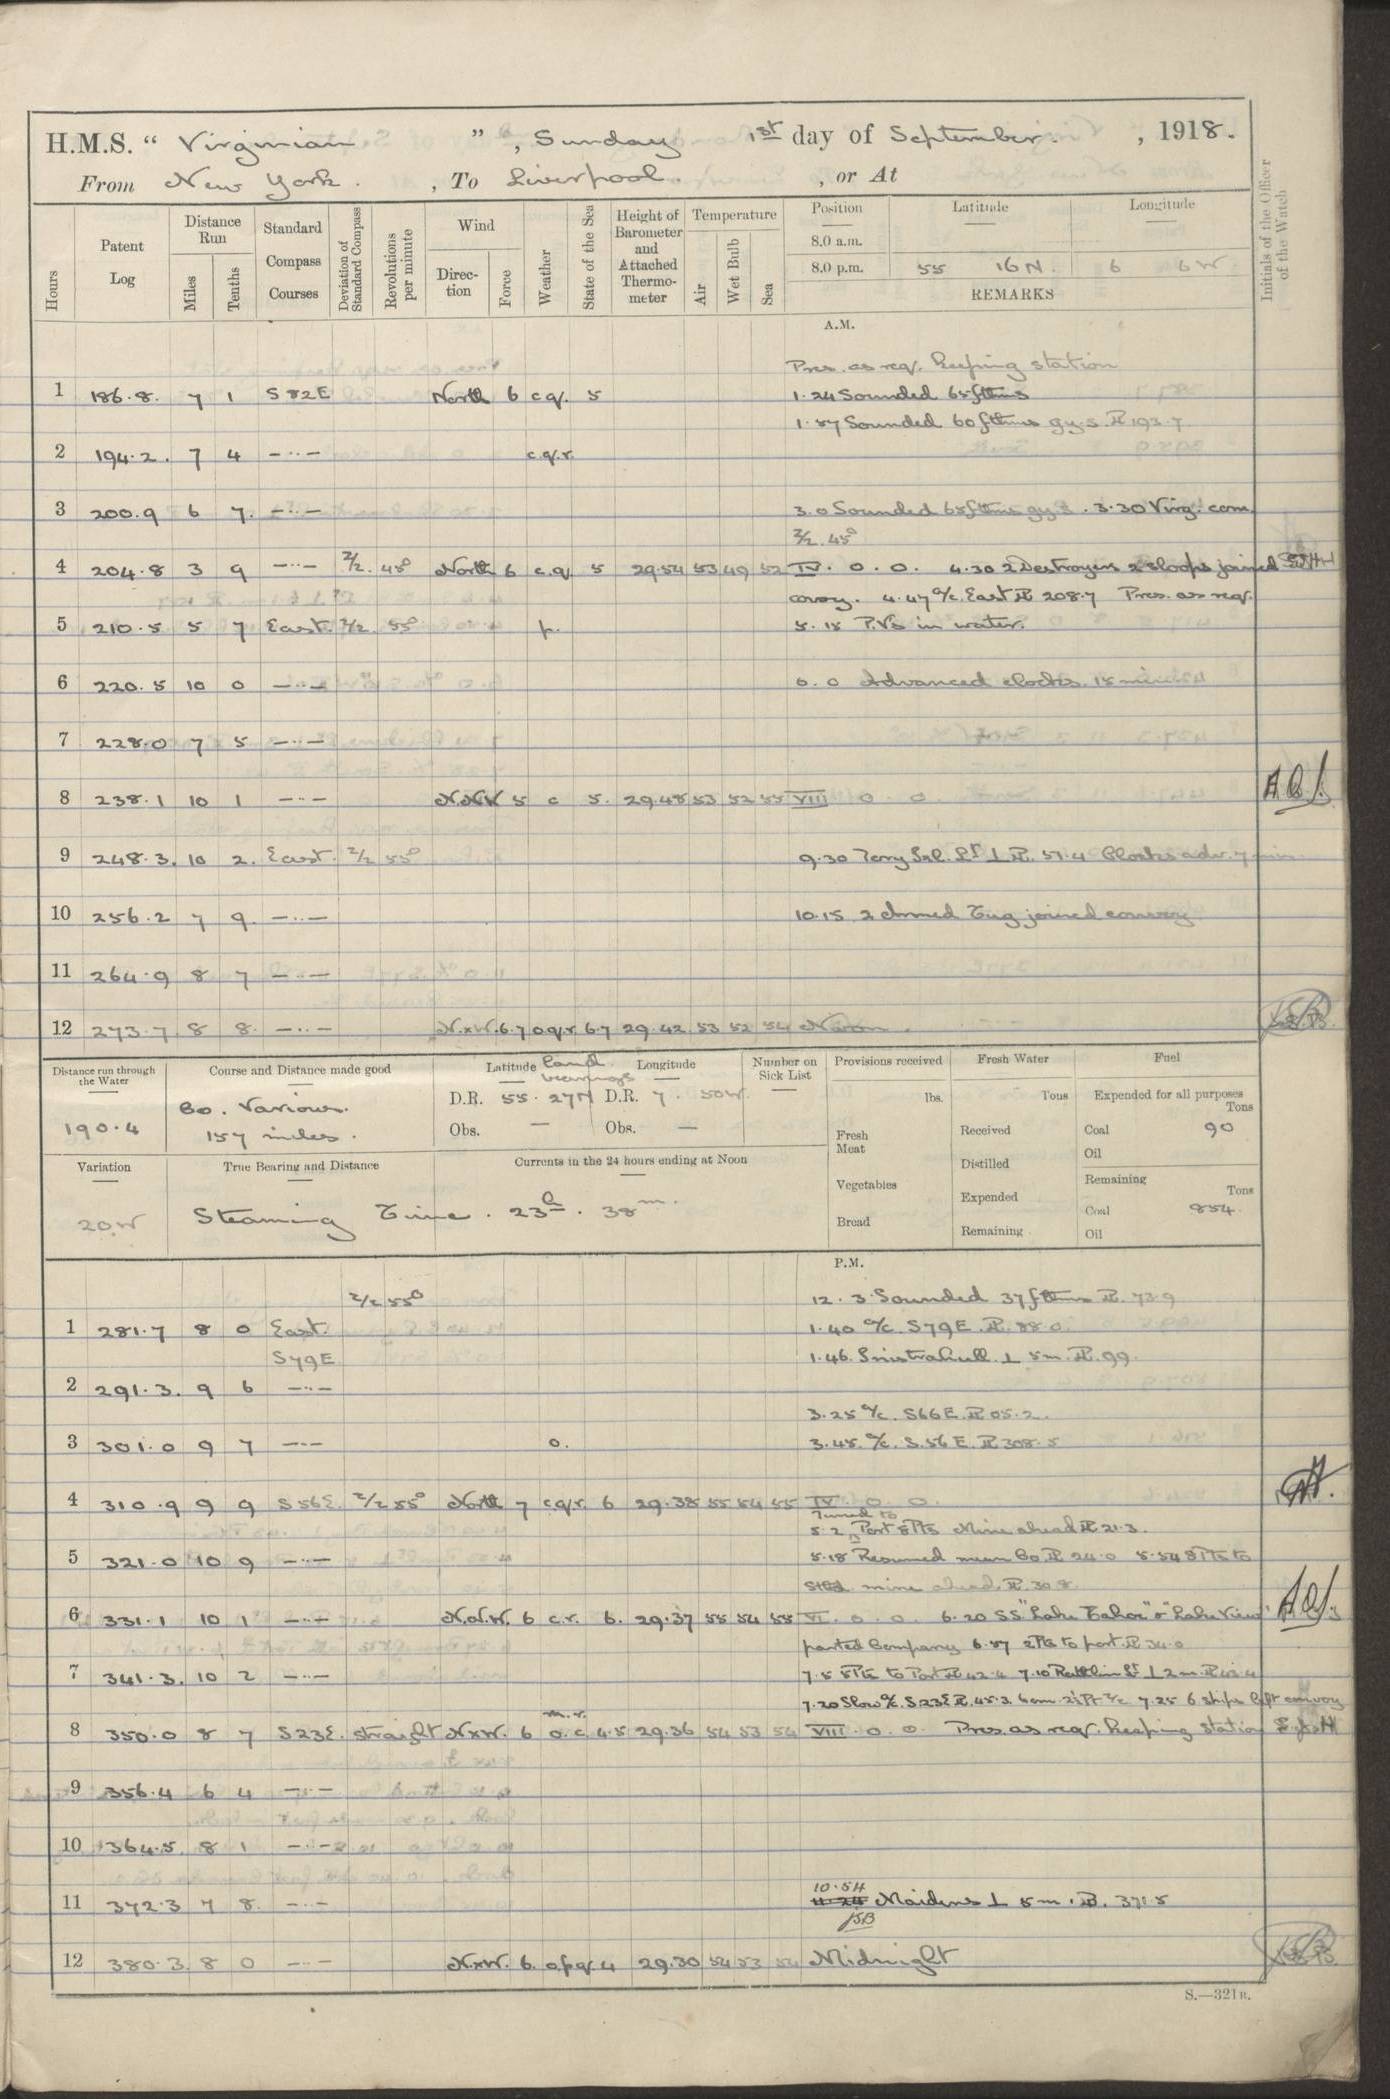 H.M.S. “ Virginian ”, Sunday 1st day of September. , 1918.
From New York. , To Liverpool. , or At
Hours
Patent Log
Distance Run
Miles
Tenths
Standard Compass Courses
Deviation of Standard Compass
Revolutions per minute
Wind
Direction
Force
Weather
State of the Sea
Height of Barometer and Attached Thermometer
Temperature
Air
Wet Bulb
Sea
Position Latitude Longitude
8.0 a.m.
8.0 p.m. 55 16 N. 6 6 W
REMARKS
Initials of the Officer of the Watch
A.M.
Pres. as req. keeping station
1 186.8. 7 1 S 82 E North 6 c.q. 5 1.24 Sounded 65 fthms
1.57 Sounded 60 fthms gy.s. PL 193.7
2 194.2. 7 4 –··– c.q.r.
3 200.9 6 7. –··– 3.0 Sounded 65 fthms gy s. 3.30 Virg: com.
Z/Z. 45°
4 204.8 3 9 –··– Z/Z. 45° North 6 c.q. 5 29.54 53 49 52 IV. 0. 0. 4.30 2 Destroyers 2 Sloops joined
convoy. 4.47 a/c. East PL 208.7 Pres. as req.
5 210.5 5 7 East. Z/Z. 55° p. 5.15 P.Vs in water.
6 220.5 10 0 –··– 6.0 Advanced clocks. 15 minutes
7 228.0 7 5 –··–
8 238.1 10 1 –··– N.N.W 5 c 5. 29.48 53 52 55 VIII 0 0
9 248.3. 10 2. East. Z/Z 55° 9.30 Tory Isl. Lt ⊥ PL. 51.4 Clocks adv. 7 min
10 256.2 7 9. –··– 10.15 2 Armed Tug joined convoy
11 264.9 8 7 –··–
12 273.7. 8 8. –··– N.xW. 6.7 o.q.r. 6.7 29.42. 53 52 54 Noon.
Distance run through the Water
190.4
Course and Distance made good
Co. Various.
157 miles.
Latitude land bearings Longitude
D.R. 55. 27 N D.R. 7. 50 W.
Obs. — Obs. —
Number on Sick List
—
Provisions received
lbs.
Fresh Meat
Vegetables
Bread
Fresh Water
Tons
Received
Distilled
Expended
Remaining
Fuel
Expended for all purposes
Tons
Coal 90
Oil
Remaining
Tons
Coal 854.
Oil
Variation
20 W
True Bearing and Distance
Currents in the 24 hours ending at Noon
Steaming Time. 23h. 38m.
P.M.
Z/Z 55° 12.3 Sounded 37 fthms PL. 73.9
1 281.7 8 0 East. 1.40 a/c. S79E. PL. 88.0.
S79E 1.46. Inistrahull. ⊥ 5m. PL. 99.
2 291.3. 9 6 –··–
3.25 a/c. S66E. PL 05.2.
3 301.0 9 7 –··– o. 3.45. a/c. S.56 E. PL 308.5
4 310.9 9 9 S 56 E. Z/Z 55° North 7 c.q.r. 6 29.38 55 54 55 IV. 0 0.
5.2 Turned to Port 8 Pts Mine ahead PL 21.3.
5 321.0 10 9 –··– 5.18 Resumed mean Co. PL 24.0 5.54 8 Pts to
Stbd. mine ahead. PL. 30.8.
6 331.1 10 1 –··– N.N.W. 6 c.r. 6. 29.37 55 54 55 VI. 0. 0. 6.20 SS "Lake Tahoe" & "Lake View"
parted Company 6.57 2 Pts to port. PL 34.0
7 341.3. 10 2 –··– 7.5 8 Pts to Port PL 42.4 7.10 Rathlin Lt ⊥ 2 m. PL 43.4
7.20 Slow a/c. S23E PL. 45.3. 7.25 6 ships left convoy
8 350.0 8 7 S23E. straight N.xW. 6 m.r. o.c. 4.5 29.36 54 53 54 VIII. 0. 0. Pres. as req. keeping station
9 356.4 6 4 –··–
10 364.5 8 1 –··–
10.54
11 372.3 7 8. –··– Maidens ⊥ 5m. PL. 371.5
JSB
12 380.3. 8 0 –··– N.xW. 6. o.p.q. 4 29.30 54 53 54 Midnight
S.—321B.